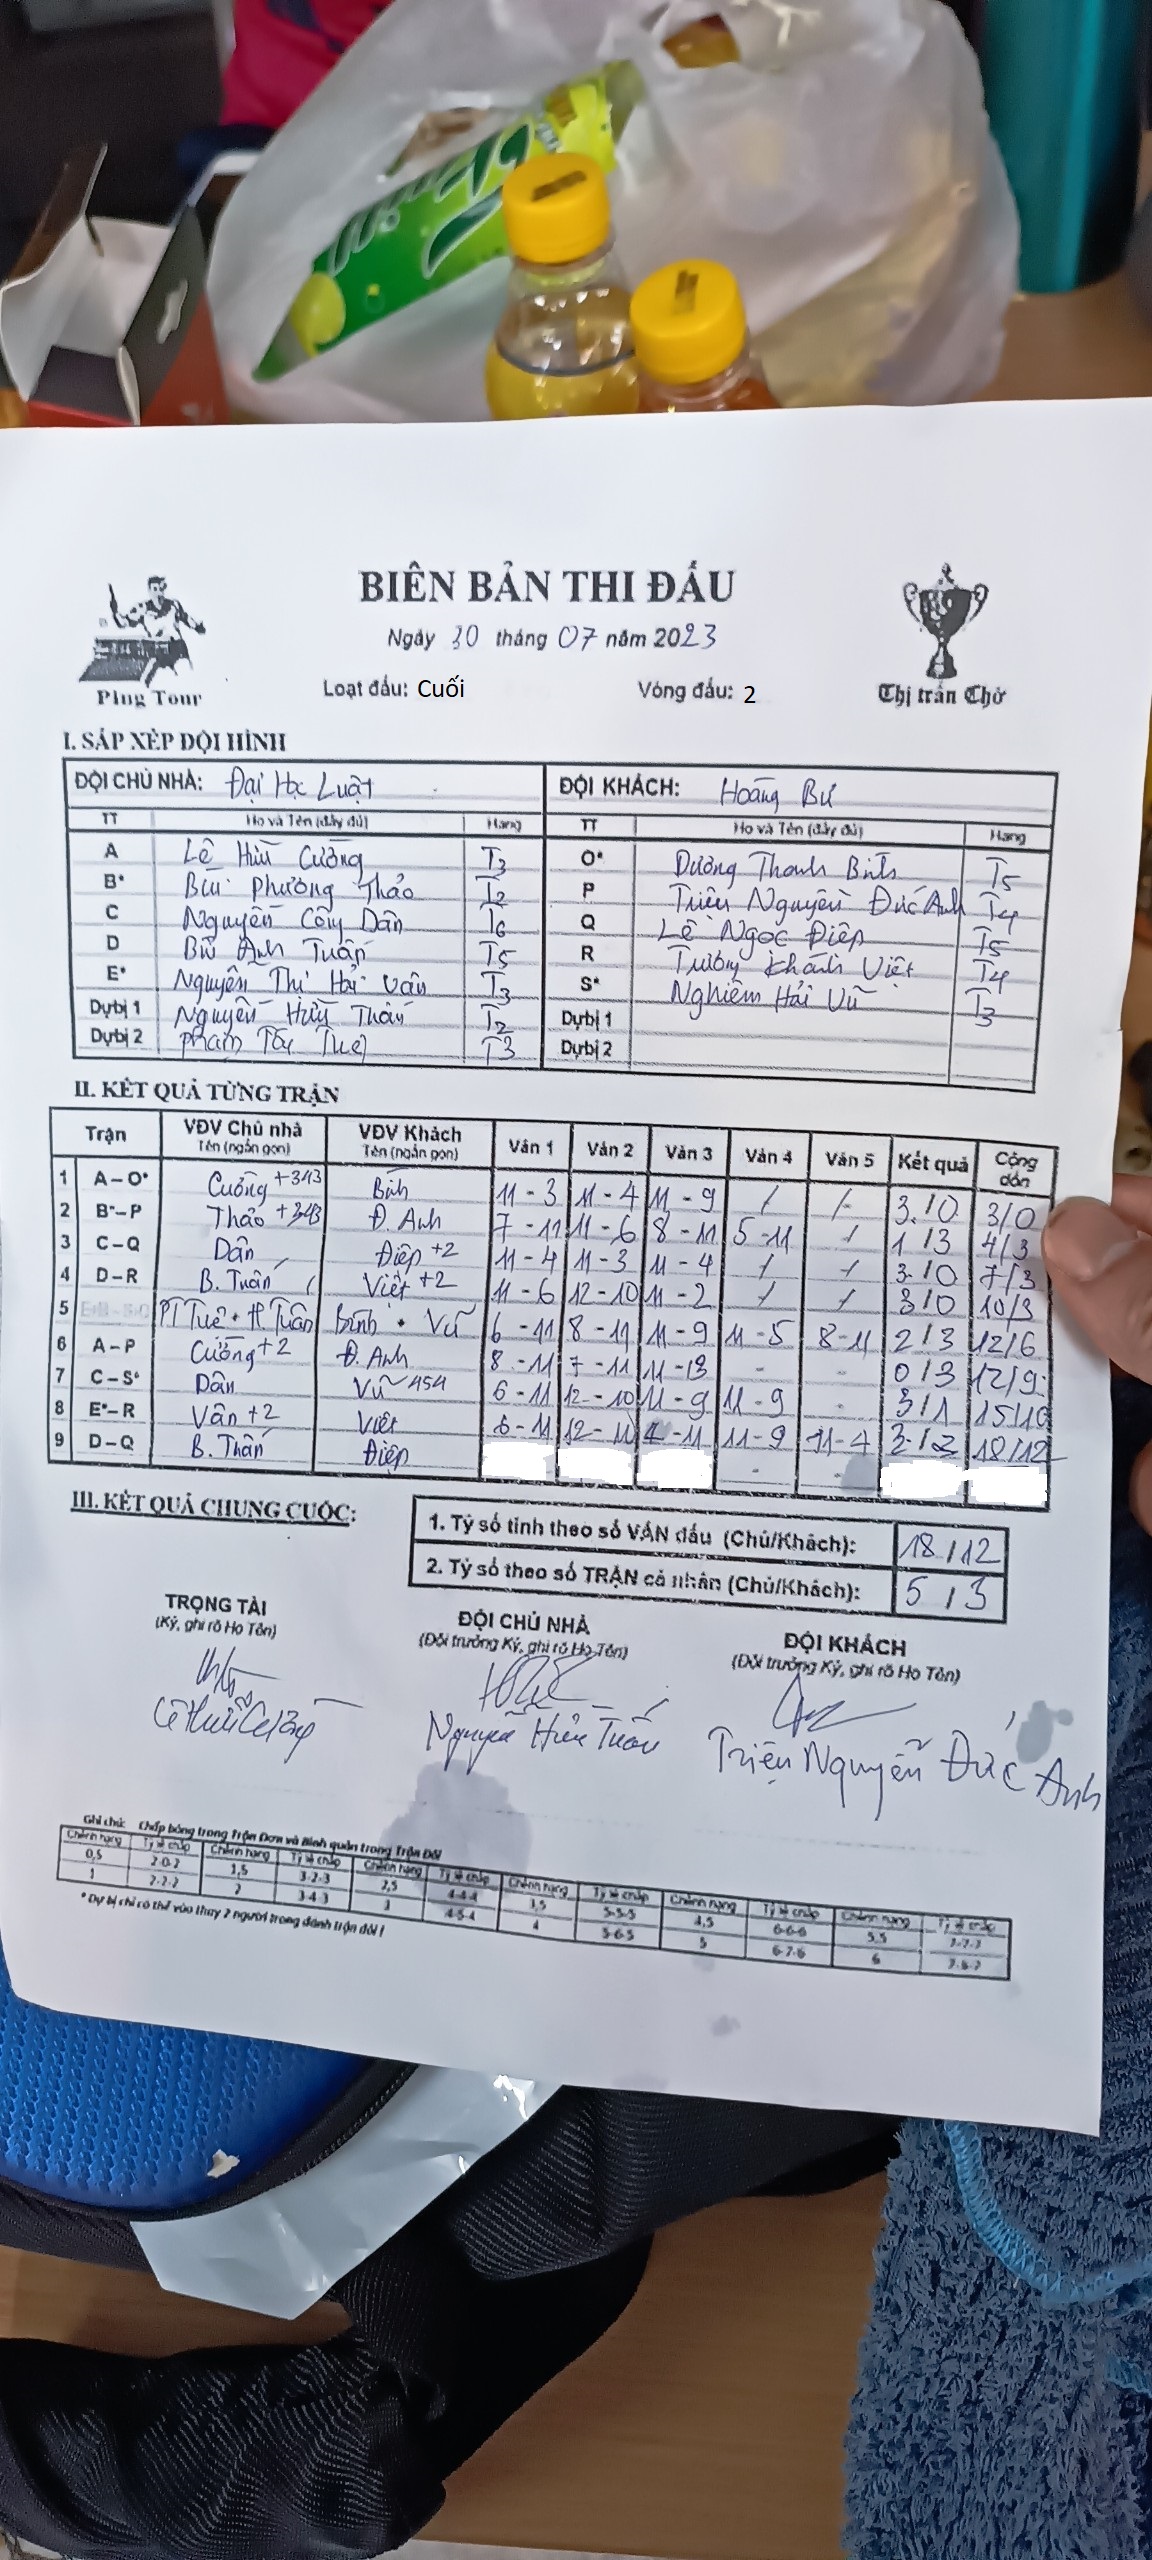 BIÊN BẢN THI ĐẤU
Ngày 30 tháng 07 năm 2023
Ping Tour
Loạt đấu: Cuối Vòng đấu: 2
Thị trấn Chờ
I. SẮP XẾP ĐỘI HÌNH
ĐỘI CHỦ NHÀ: Đại Học Luật ĐỘI KHÁCH: Hoàng Bư
TT Họ và Tên (đầy đủ) Hạng TT Họ và Tên (đầy đủ) Hạng
A Lê Hữu Cường T3 O* Dương Thanh Bình T5
B* Bùi Phương Thảo T2 P Triệu Nguyễn Đức Anh T4
C Nguyễn Công Dân T6 Q Lê Ngọc Điệp T5
D Bùi Anh Tuấn T5 R Trương Khánh Việt T4
E* Nguyễn Thị Hải Vân T3 S* Nghiêm Hải Vũ T3
Dự bị 1 Nguyễn Hữu Thấn T2 Dự bị 1
Dự bị 2 Phạm Tây Tuệ T3 Dự bị 2
II. KẾT QUẢ TỪNG TRẬN
Trận VĐV Chủ nhà VĐV Khách Ván 1 Ván 2 Ván 3 Ván 4 Ván 5 Kết quả Cộng dồn
Tên (ngắn gọn) Tên (ngắn gọn)
1 A – O* Cường +343 Bình 11 - 3 11 - 4 11 - 9 / / 3 / 0 3/0
2 B* – P Thảo +343 Đ. Anh 7 - 11 11 - 6 8 - 11 5 - 11 / 1 / 3 4/3
3 C – Q Dân Điệp +2 11 - 4 11 - 3 11 - 4 / / 3 / 0 7/3
4 D – R B. Tuấn Việt +2 11 - 6 12 - 10 11 - 2 / / 3 / 0 10/3
5 PT Tuệ + H Tuấn Bình + Vũ 6 - 11 8 - 11 11 - 9 11 - 5 8 - 11 2 / 3 12/6
6 A – P Cường +2 Đ. Anh 8 - 11 7 - 11 11 - 13 - - 0 / 3 12/9
7 C – S* Dân Vũ 454 6 - 11 12 - 10 11 - 9 11 - 9 - 3 / 1 15/10
8 E* – R Vân +2 Việt 6 - 11 12 - 11 - 11 11 - 9 11 - 4 3 / 2 18/12
9 D – Q B. Thấn Điệp - -
III. KẾT QUẢ CHUNG CUỘC:
1. Tỷ số tính theo số VÁN đấu (Chủ/Khách): 18 / 12
2. Tỷ số theo số TRẬN cá nhân (Chủ/Khách): 5 / 3
TRỌNG TÀI ĐỘI CHỦ NHÀ ĐỘI KHÁCH
(Ký, ghi rõ Họ Tên) (Đội trưởng Ký, ghi rõ Họ Tên) (Đội trưởng Ký, ghi rõ Họ Tên)
Lê Hữu Cường Nguyễn Hữu Tuấn Triệu Nguyễn Đức Anh
Ghi chú: Chấp bóng trong Trận Đơn và Bình quân trong Trận Đôi
Chênh hạng Tỷ lệ chấp Chênh hạng Tỷ lệ chấp Chênh hạng Tỷ lệ chấp Chênh hạng Tỷ lệ chấp Chênh hạng Tỷ lệ chấp Chênh hạng Tỷ lệ chấp
0,5 2-0-2 1,5 3-2-3 2,5 4-4-4 3,5 5-5-5 4,5 6-6-6 5,5 7-7-7
1 2-2-2 2 3-4-3 3 4-5-4 4 5-6-5 5 6-7-6 6 7-8-7
* Dự bị chỉ có thể vào thay 2 người trong đánh trận đôi !